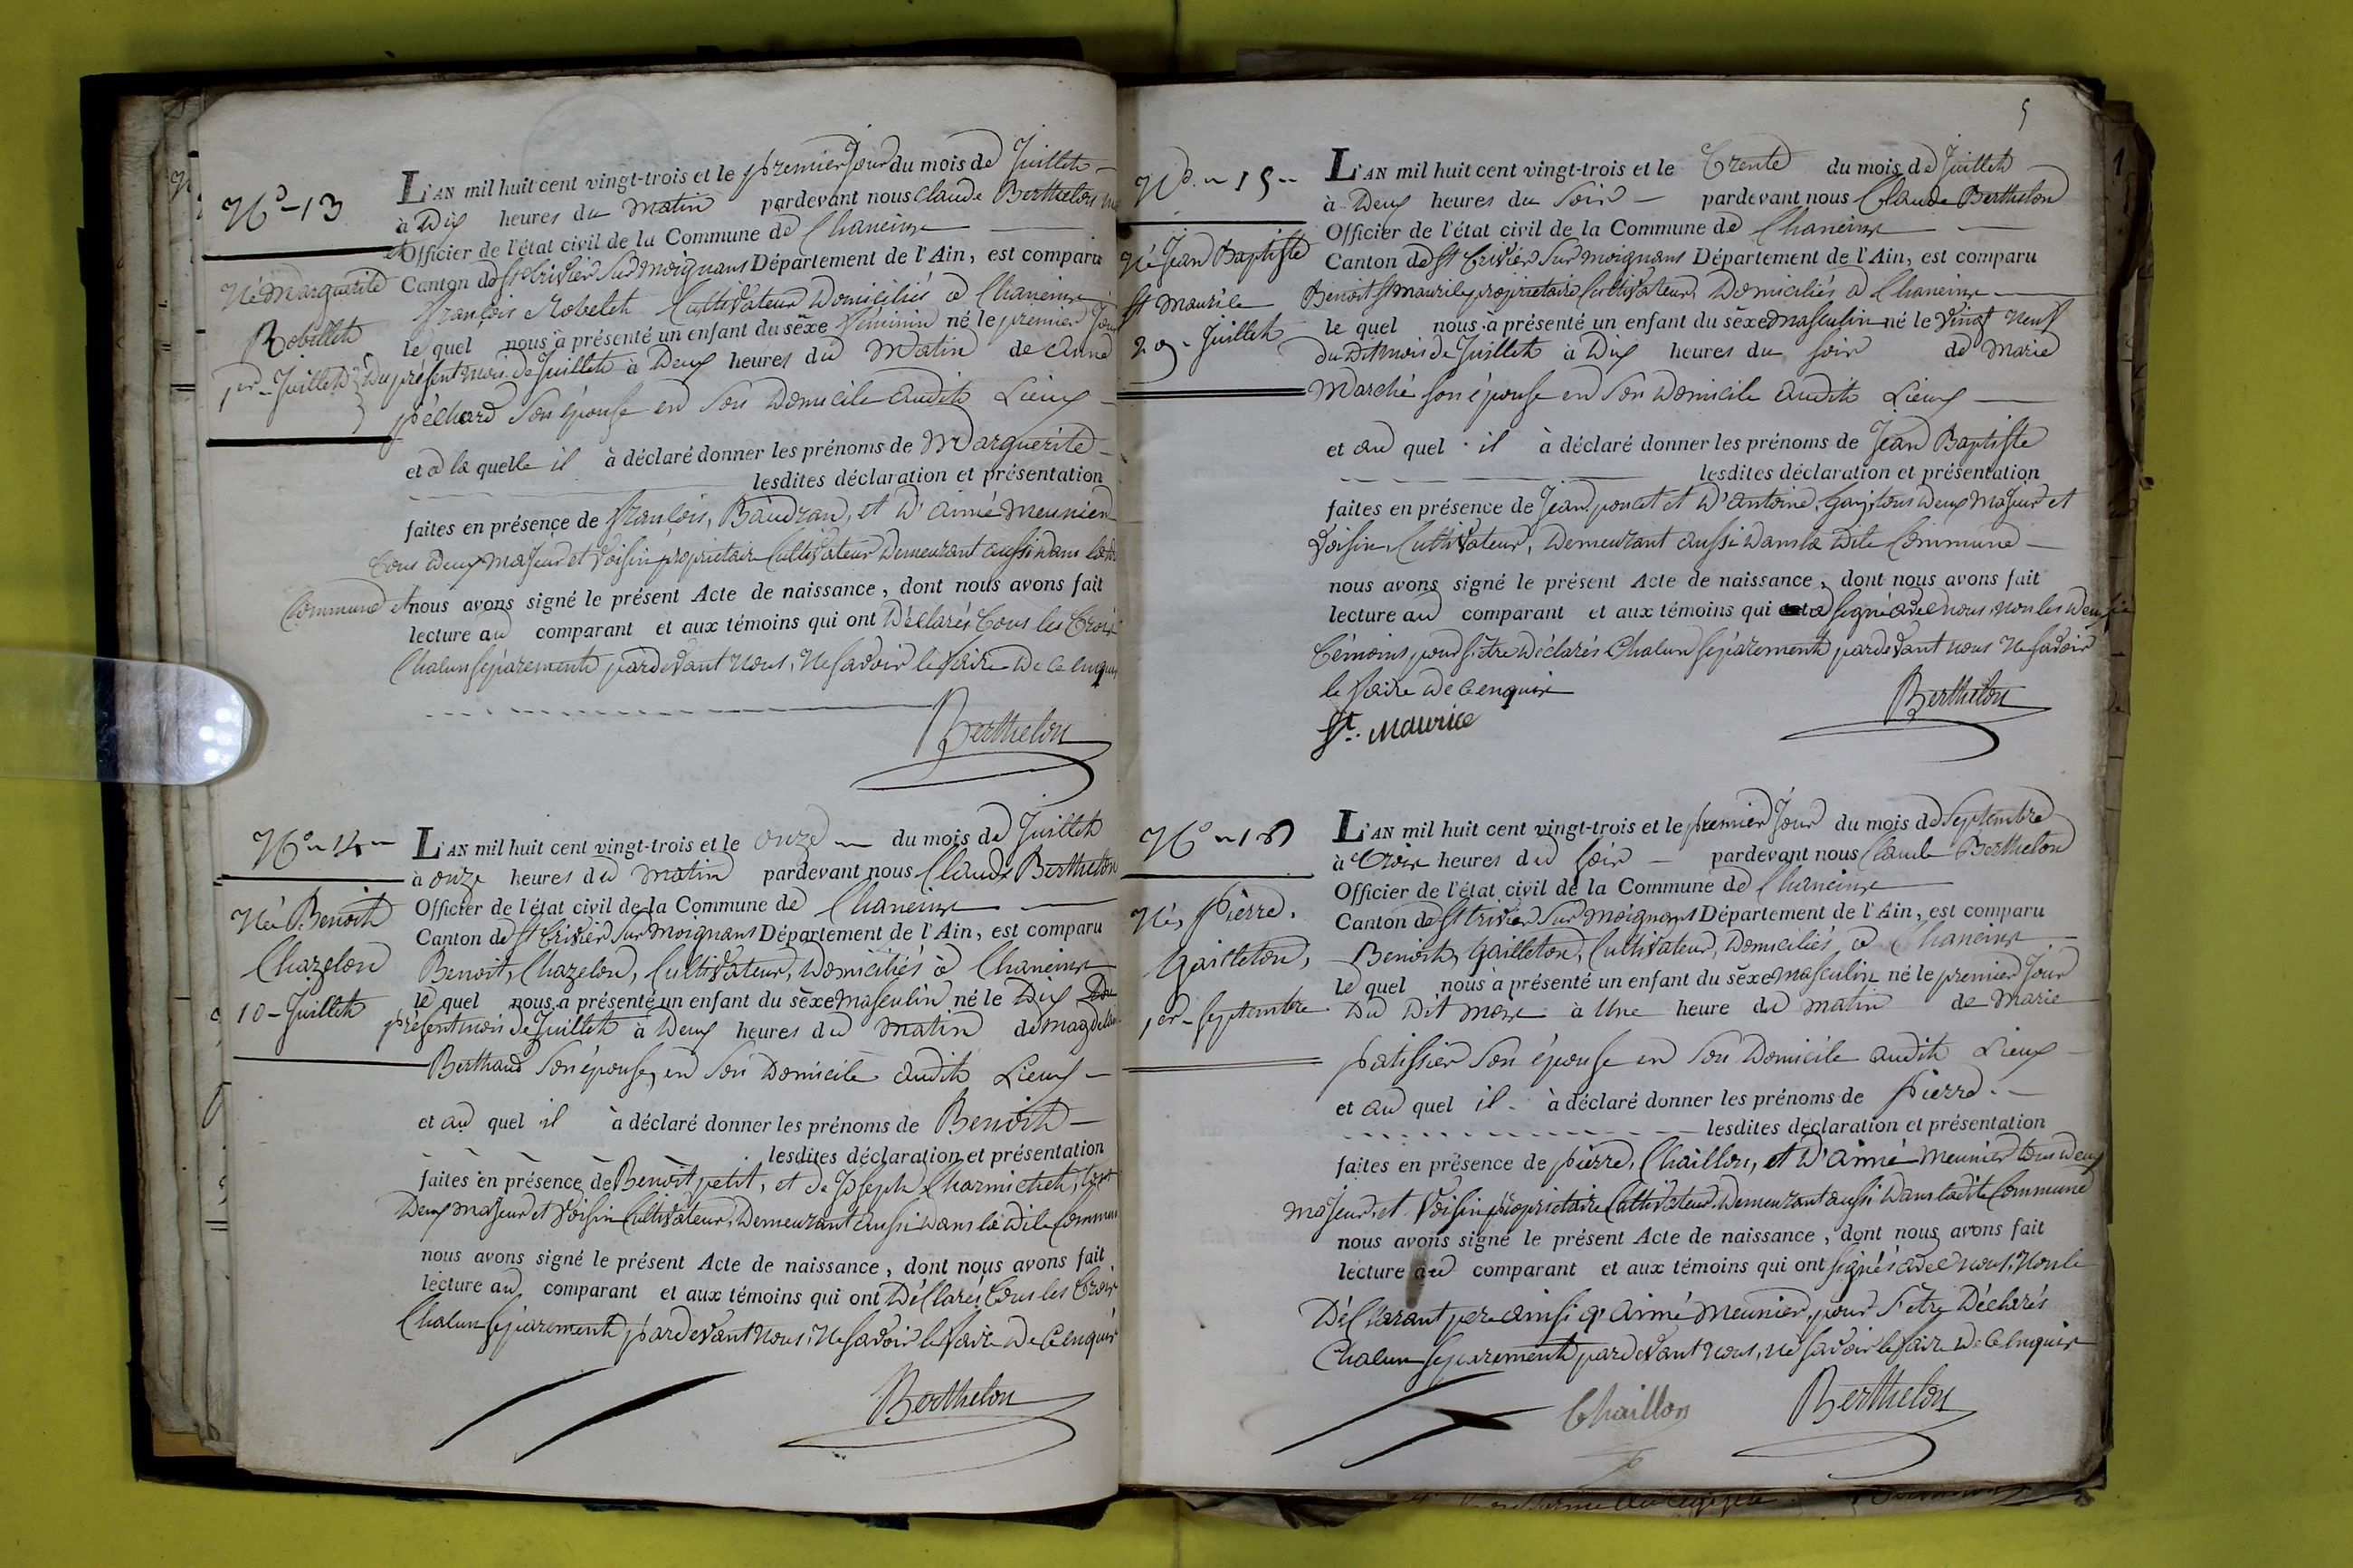 N° - 13
Née Marguerite
Robellet
1er - Juillet
L'AN mil huit cent vingt-trois et le premier Jour du mois de Juillet -
à Dix heures du matin pardevant nous Claude Berthelon
Officier de l'état civil de la Commune de Chaneinx
Canton de St Trivier Sur moignans Département de l'Ain, est comparu
François Robelet Cultivateur Domiciliés à Chaneinx
le quel nous à présenté un enfant du sèxe féminin né le premier Jour
Du présent mois de Juillet à Deux heures du Matin de Anne
péchard Son épouse en Son Domicile audit Lieux -
et a la quelle il à déclaré donner les prénoms de Marguerite -
lesdites déclaration et présentation
faites en présence de françois, Baudran, et D'aimé meunier
Tous Deux majeur et Voisin proprietair Cultivateur Demeurant aussi Dans ladite
Commune et nous avons signé le présent Acte de naissance, dont nous avons fait
lecture au comparant et aux témoins qui ont Déclarés Tous les Troix
Chacun séparement pardevant nous, Ne Savoir le faire De ce enquix
Berthelon
N° - 14 -
Né Benoit
Chazelon
10 - Juillet
L'AN mil huit cent vingt-trois et le onze - du mois de Juillet
à onze heures du matin pardevant nous Claude Berthelon
Officier de l'état civil de la Commune de Chaneinx
Canton de St Trivier Sur moignans Département de l'Ain, est comparu
Benoit, Chazelon, Cultivateur, Domiciliés à Chaneinx
le quel nous à présenté un enfant du sèxe masculin né le Dix Du
présent mois de Juillet à Deux heures du matin de magdelaine
Berthaud Son épouse, en Son Domicile audit Lieux -
et au quel il à déclaré donner les prénoms de Benoit -
lesdites déclaration et présentation
faites en présence de Benoit petit, et de Joseph Charmichet, tous
Deux majeur et Voisin Cultivateur, Demeurant aussi Dans la Dite Commune
nous avons signé le présent Acte de naissance, dont nous avons fait
lecture au comparant et aux témoins qui ont Déclarés Tous les Troix
Chacun séparement pardevant nous, Ne Savoir le faire De ce enquix
Berthelon
5
N° - 15 -
Né Jean Baptiste
St Maurice
29 - Juillet
L'AN mil huit cent vingt-trois et le Trente du mois de Juillet
à Deux heures du Soir - pardevant nous Claude Berthelon
Officier de l'état civil de la Commune de Chaneinx
Canton de St Trivier Sur moignans Département de l'Ain, est comparu
Benoit St maurice proprietaire Cultivateur Domiciliés à Chaneinx
le quel nous à présenté un enfant du sèxe masculin né le Vingt Neuf
du Dit mois de Juillet à Dix heures du soir de Marie
Marché son épouse en Son Domicile audit Lieux
et au quel il à déclaré donner les prénoms de Jean Baptiste
lesdites déclaration et présentation
faites en présence de Jean poncet et D'antoine, Gay, tous Deux Majeur et
Voisin, Cultivateur, Demeurant aussi Dans la Dite Commune -
nous avons signé le présent Acte de naissance, dont nous avons fait
lecture au comparant et aux témoins qui a signé avec nous, non les Deux
Témoins pour s'être Déclarés Chacun séparement pardevant nous Ne Savoir
le faire De ce enquix
St. Maurice
Berthelon
N° - 16
Né, Pierre,
Gailleton,
1er - Septembre
L'AN mil huit cent vingt-trois et le premier Jour du mois de Septembre
à Troix heures du soir - pardevant nous Claude Berthelon
Officier de l'état civil de la Commune de Chaneinx
Canton de St trivier Sur moignans Département de l'Ain, est comparu
Benoit, Gailleton, Cultivateur, Domiciliés, à Chaneinx -
le quel nous à présenté un enfant du sèxe masculin né le premier Jour
Du Dit moix à Une heure du matin de Marie
patissier Son épouse en Son Domicile audit Lieux -
et au quel il à déclaré donner les prénoms de Pierre. -
lesdites déclaration et présentation
faites en présence de pierre, Chaillon, et D'aimé meunier tous Deux
majeur, et Voisin proprietaire Cultivateur, Demeurant aussi Dans ladite Commune
nous avons signé le présent Acte de naissance, dont nous avons fait
lecture au comparant et aux témoins qui ont signés avec nous, Non le
Déclarant pere ainsi q' aimé meunier, pour s'être Déclarés
Chacun séparement pardevant nous, ne savoir le faire De ce enquix
Chaillon
Berthelon